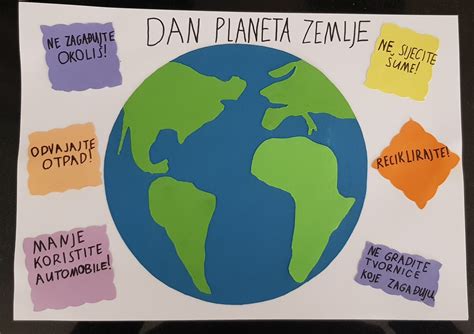 DAN PLANETA ZEMLJE
NE ZAGAĐUJTE
OKOLIŠ!
NE SIJECITE
ŠUME!
ODVAJAJTE
OTPAD!
RECIKLIRAJTE!
MANJE
KORISTITE
AUTOMOBILE!
NE GRADITE
TVORNICE
KOJE ZAGAĐUJU